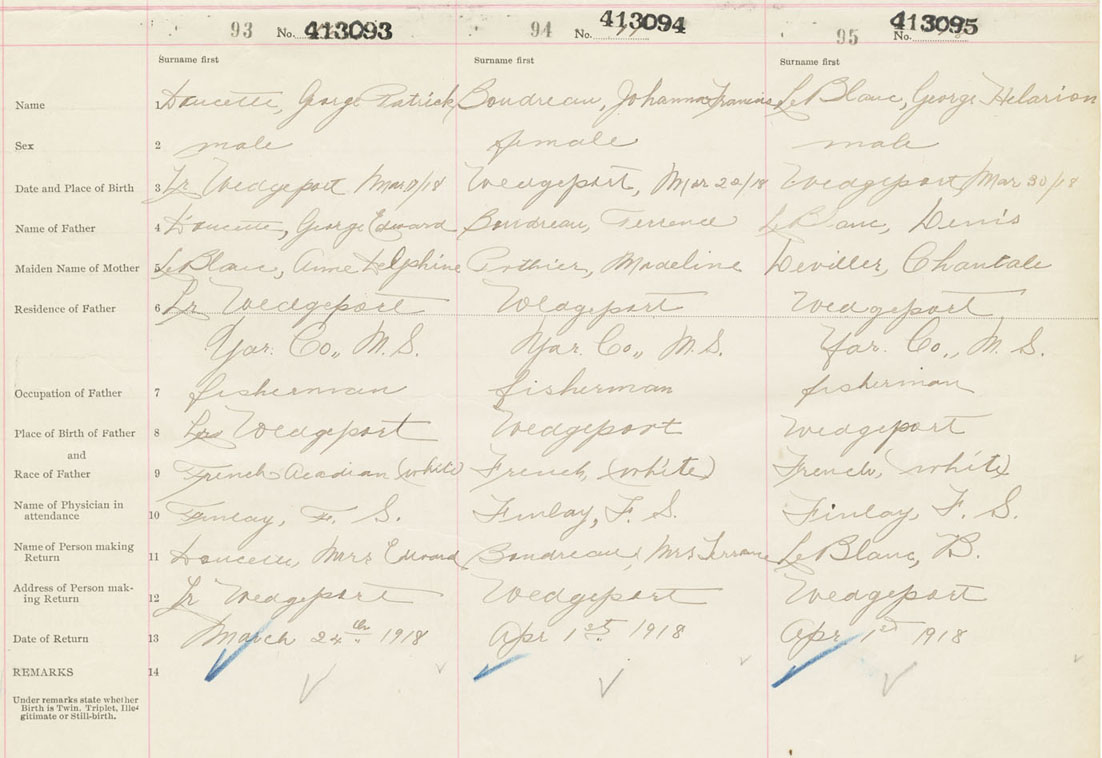 93 No. 413093 94 No. 413094 95 No. 413095
Surname first Surname first Surname first
Name 1 Doucette, George Patrick Boudreau, Johanna Francis LeBlanc, George Helarion
Sex 2 male female male
Date and Place of Birth 3 Lr Wedgeport Mar /18 Wedgeport, Mar 20/18 Wedgeport Mar 30/18
Name of Father 4 Doucette, George Edward Boudreau, Terrence LeBlanc, Denis
Maiden Name of Mother 5 LeBlanc, Anne Delphine Madeline Deviller, Chantale
Residence of Father 6 Lr Wedgeport Wedgeport Wedgeport
Yar. Co., N.S. Yar. Co., N.S. Yar. Co., N.S.
Occupation of Father 7 fisherman fisherman fisherman
Place of Birth of Father 8 Lr Wedgeport Wedgeport Wedgeport
and
Race of Father 9 French Acadian (white) French, (white) French, (white)
Name of Physician in
attendance 10 Finlay, F. S. Finlay, F. S. Finlay, F. S.
Name of Person making
Return 11 Doucette, Mrs Edward Boudreau, Mrs Terrance LeBlanc, D.
Address of Person mak-
ing Return 12 Lr Wedgeport Wedgeport Wedgeport
Date of Return 13 March 24th 1918 Apr 1st 1918 Apr 1st 1918
REMARKS 14
Under remarks state whether
Birth is Twin, Triplet, Ille-
gitimate or Still-birth.